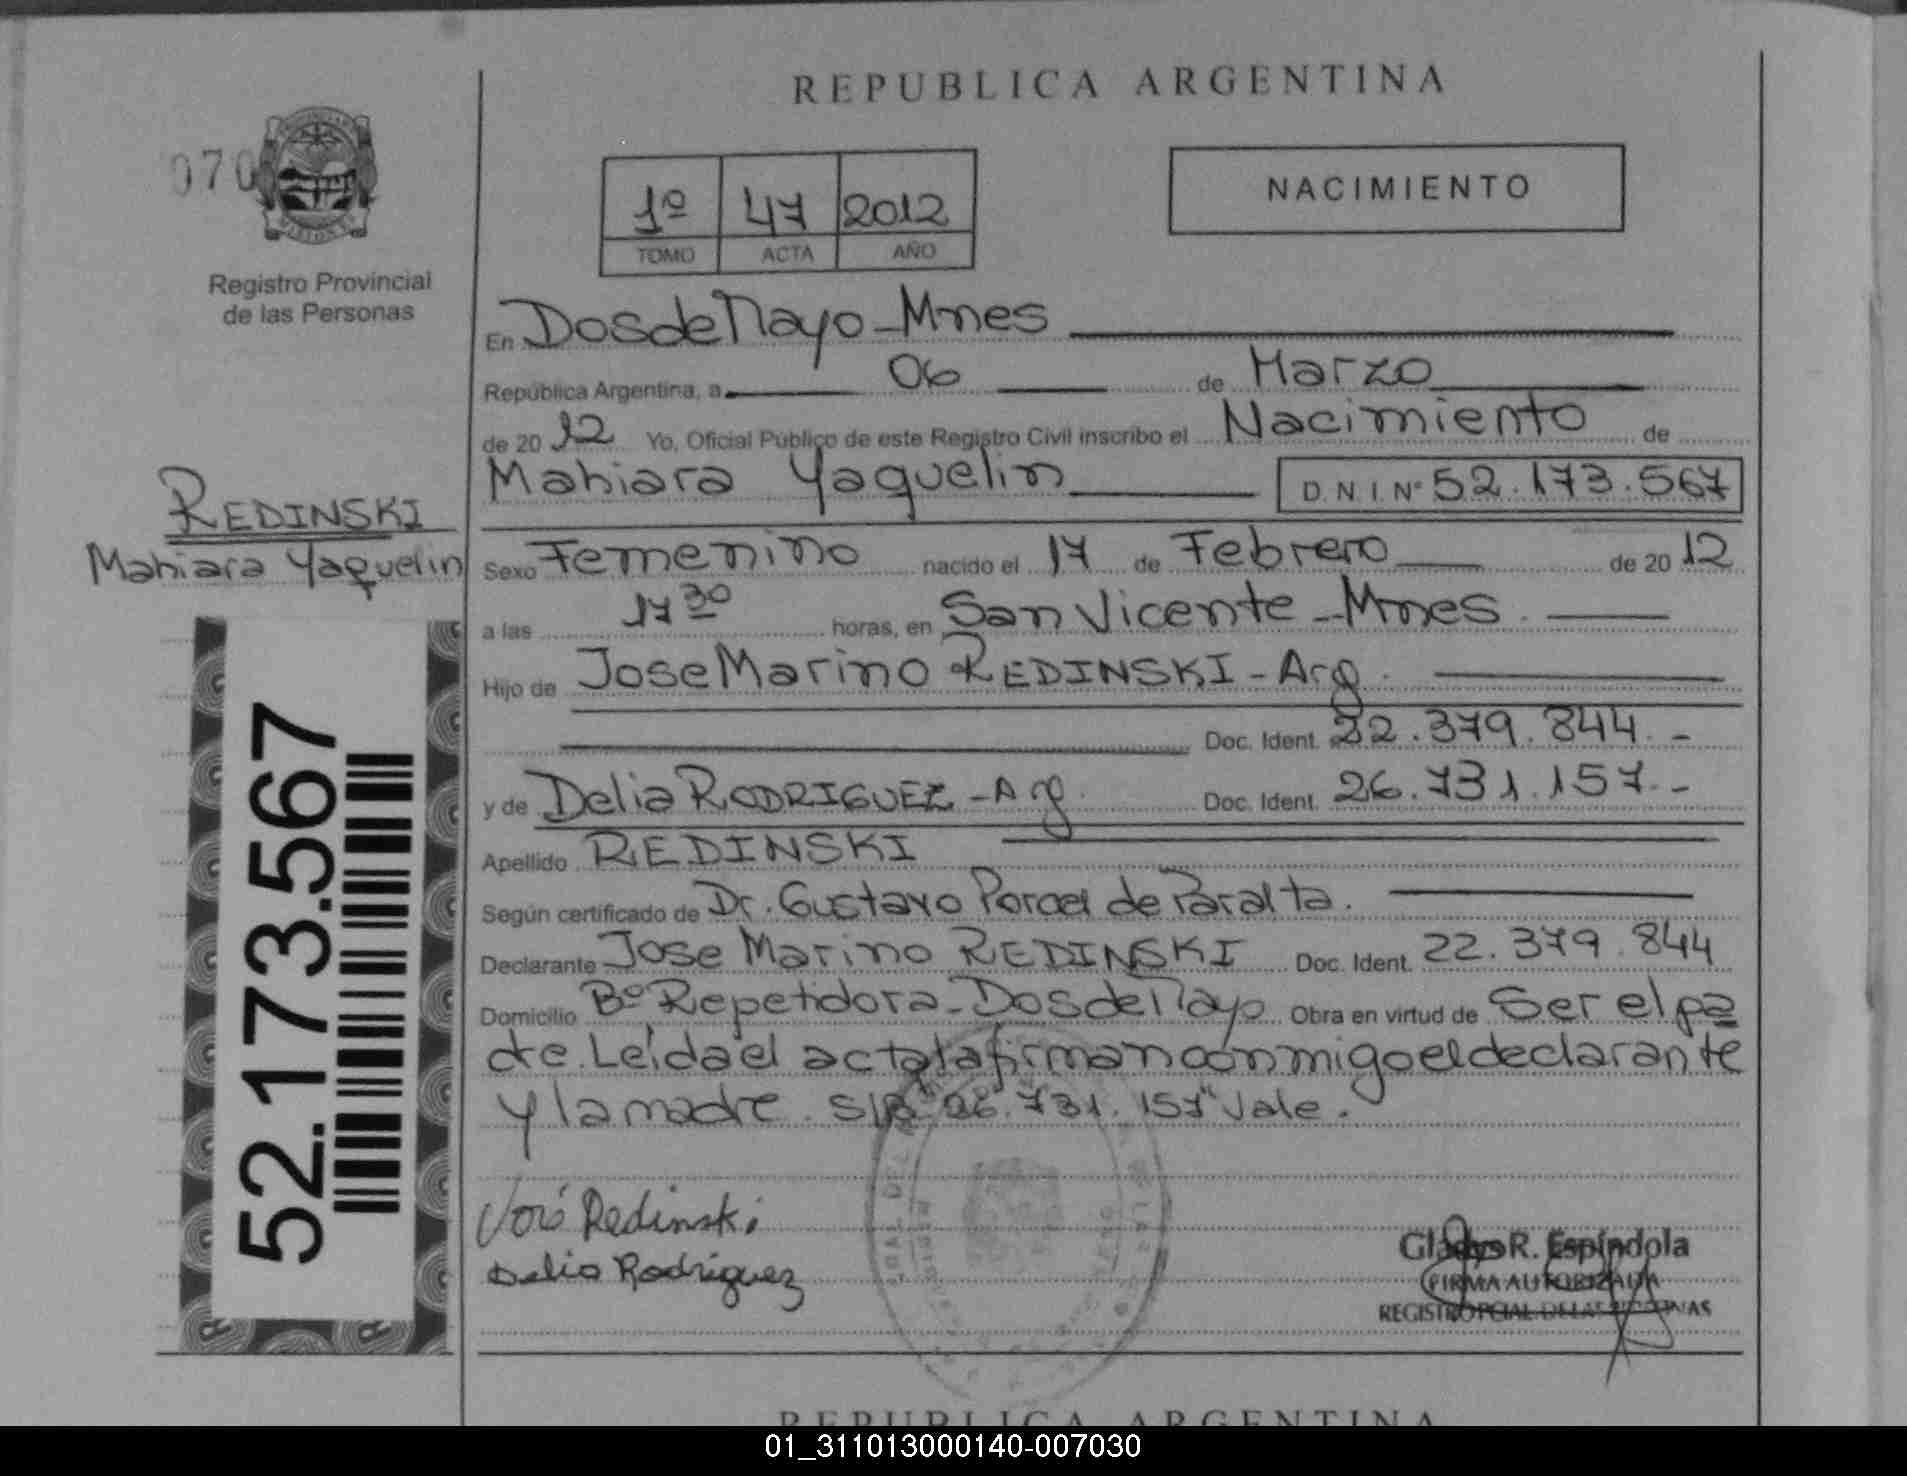 REPUBLICA ARGENTINA
070
Registro Provincial
de las Personas
1º 47 2012
TOMO ACTA AÑO
NACIMIENTO
En Dos de Mayo - Mnes
República Argentina, a 06 de Marzo
de 2012 Yo, Oficial Público de este Registro Civil inscribo el Nacimiento de
Mahiara Yaquelin D.N.I. Nº 52.173.567
REDINSKI
Mahiara Yaquelin
Sexo Femenino nacido el 17 de Febrero de 2012
a las 17 30 horas, en San Vicente - Mnes.
Hijo de Jose Marino REDINSKI - Arg.
Doc. Ident. 22.379.844.-
y de Delia RODRIGUEZ - Arg. Doc. Ident. 26.731.157.-
Apellido REDINSKI
Según certificado de Dr. Gustavo Porcel de Paralta.
Declarante Jose Marino REDINSKI Doc. Ident. 22.379.844
Domicilio Bº Repetidora - Dos de Mayo Obra en virtud de Ser el pa
dre. Leída el acta la firman conmigo el declarante
y la madre. S/R "26.731.157" Vale.
52.173.567
José Redinski
Delia Rodriguez
Gladys R. Espíndola
FIRMA AUTORIZADA
REGISTRO PCIAL DE LAS PERSONAS
REPUBLICA ARGENTINA
01_311013000140-007030